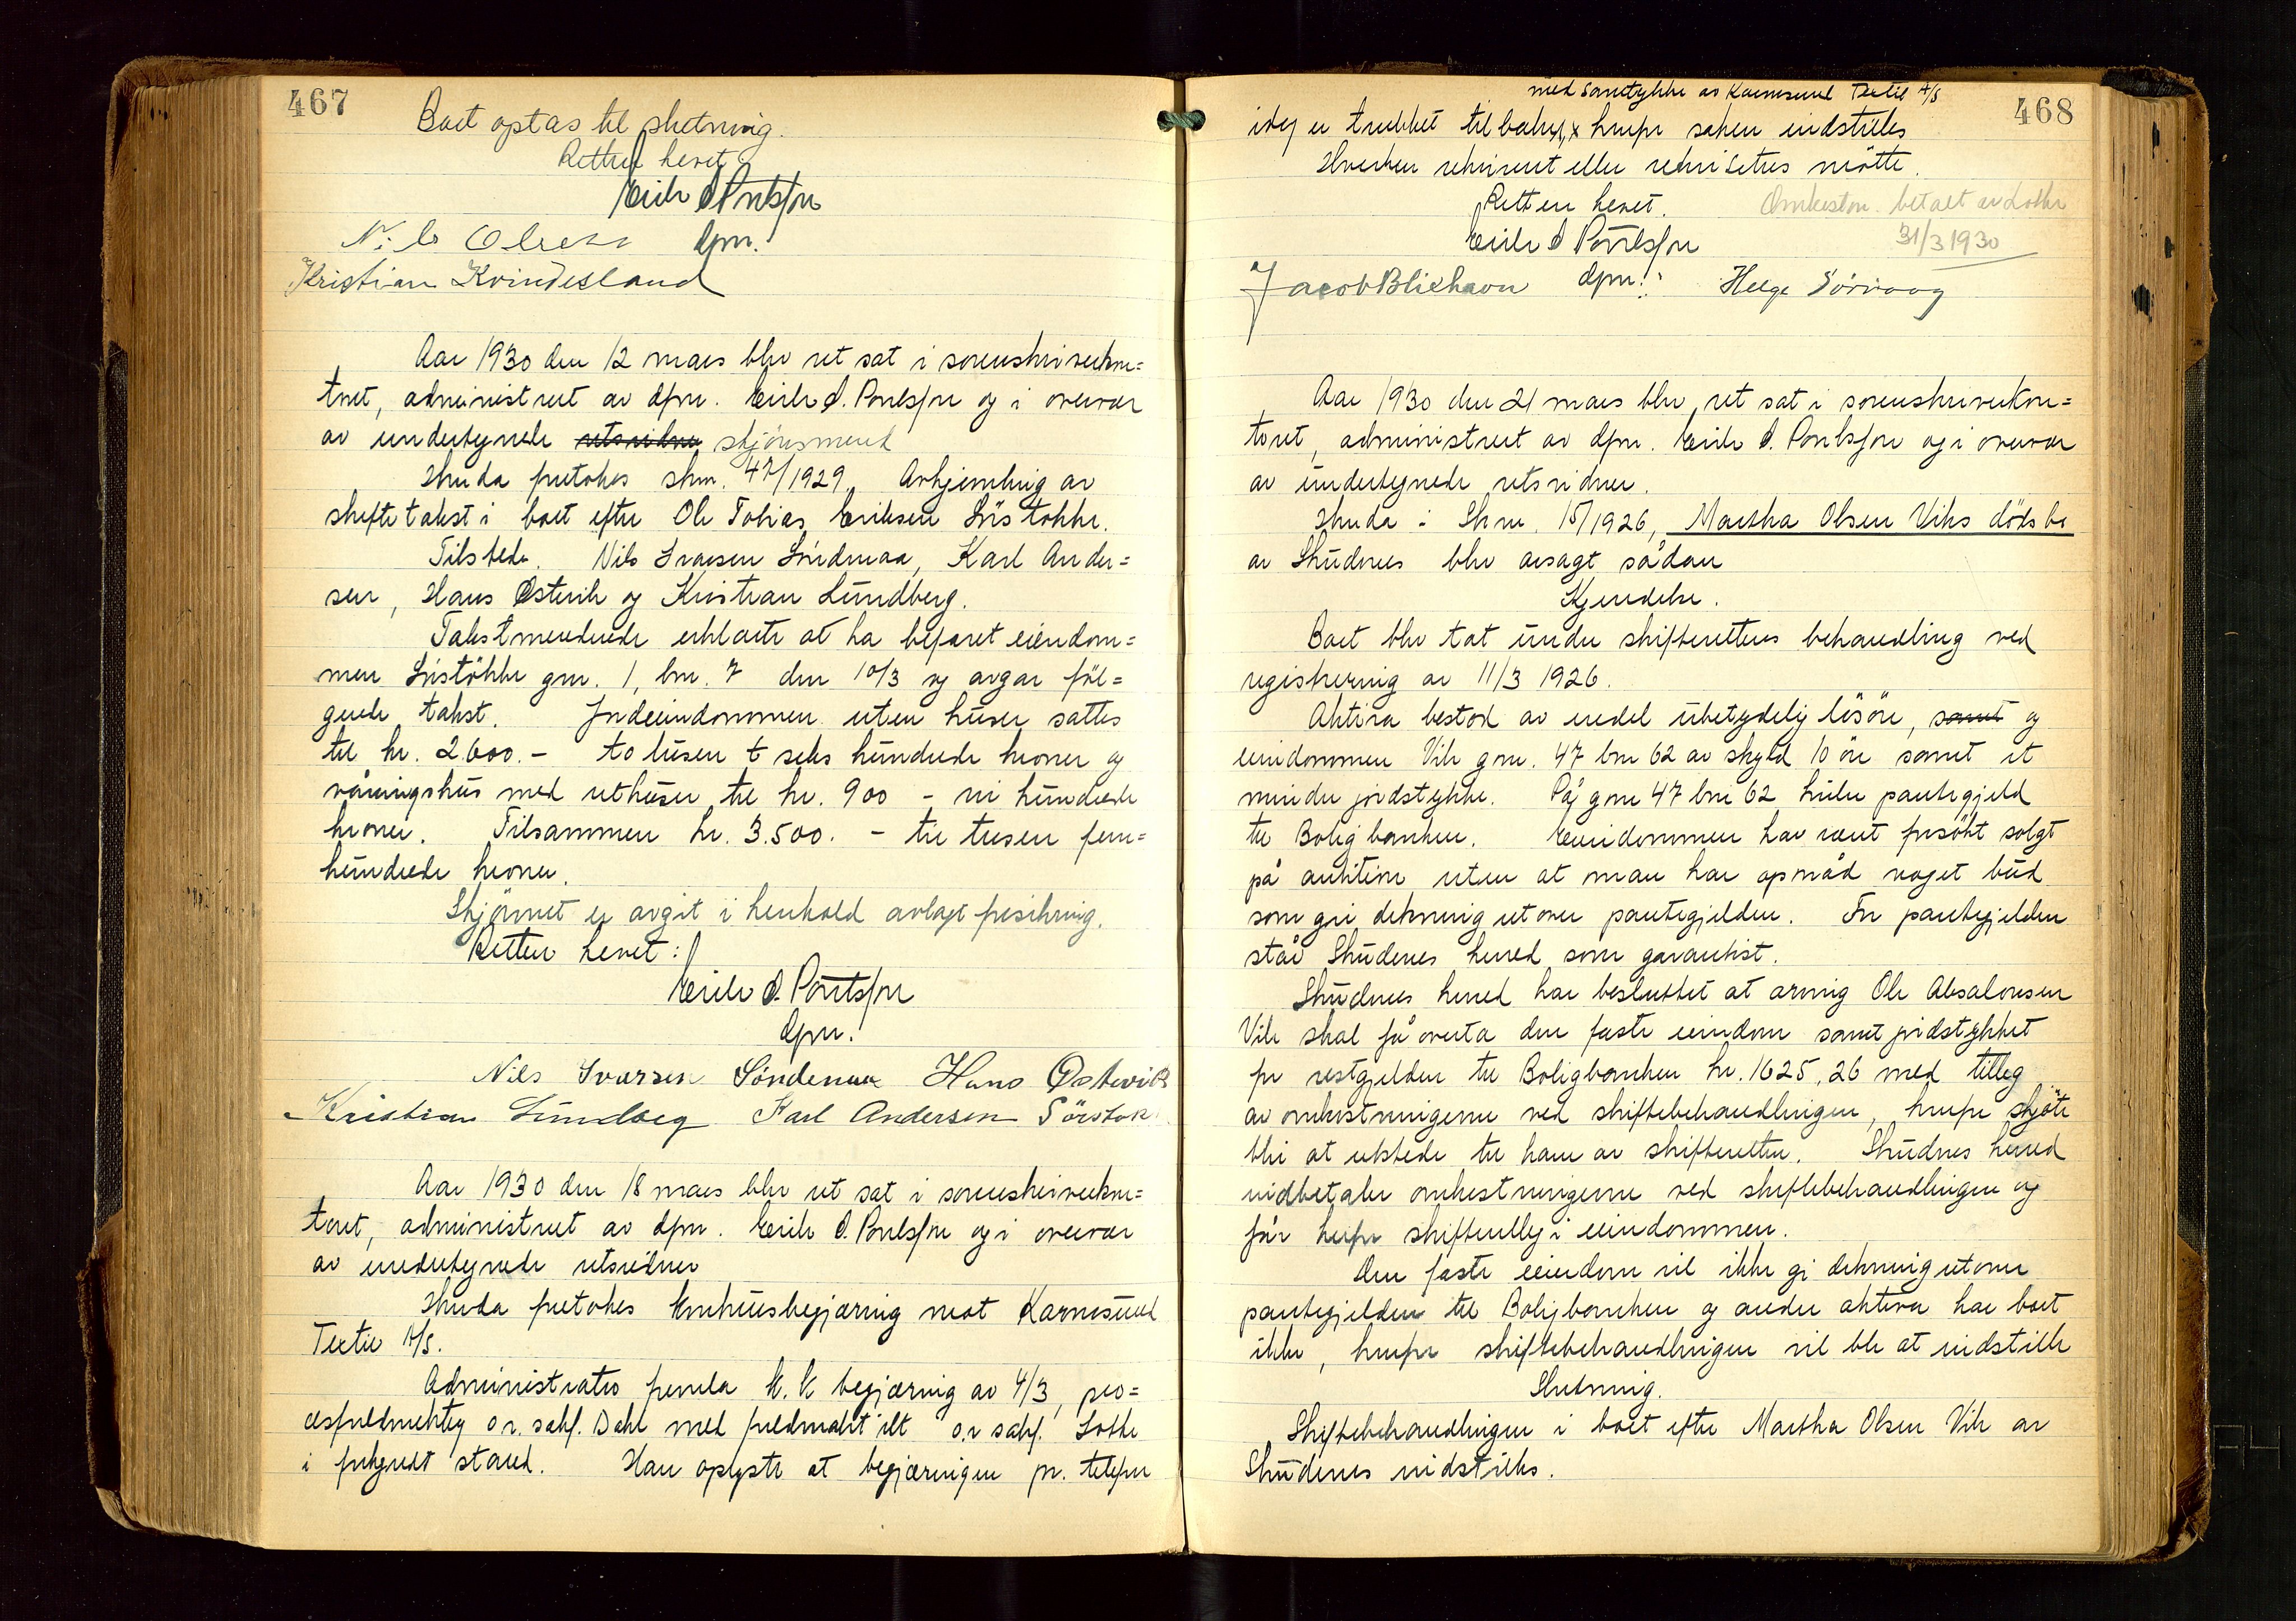 467
Boet optas til slutning.
Retten hevet
Eirik S Poulsson
dfm.
Nils Olsen
Kristian Kvindesland
Aar 1930 den 12 mars blev ret sat i sorenskriverkon=
toret, administrert av dfm. Eirik S. Poulsson og i overvær
av undertegnede retsvidner skjønsmenn
Hvuda foretokes skm. 47/1929. Avhjemling av
skiftetakst i boet efter Ole Tobias Eriksen Sörstokke.
Tilstede. Nils Ivarsen Söndenaa, Karl Ander=
sen, Hans Östevik og Kristian Lundberg.
Takstmendene erklærte at ha befaret eiendom=
men Sörstökke gnr. 1, bnr. 7 den 10/3 og avgav föl=
gende takst. Indeiendommen uten huser sattes
til kr. 2.600.- to tusen & seks hundrede kroner og
våningshus med uthuser til kr. 900 - ni hundrede
kroner. Tilsammen kr. 3.500. - tre tusen fem=
hundrede kroner.
Skjönnet er avgit i henhold avlagt forsikring.
Retten hevet:
Eirik S. Poulsson
dfm.
Nils Ivarsen Söndenaa Hans Östevik
Kristian Lundberg Karl Andersen Sörstok
Aar 1930 den 18 mars blev ret sat i sorenskriverkon=
toret, administrert av dfm. Eirik S. Poulsson og i overvær
av undertegnede retsvidner
Hvuda foretokes konkursbegjæring mot Karmsund
Textil A/S.
Administrator fremla K.K begjæring av 4/3, pro=
cesfuldmektig o.r. sakf. Dahl med fuldmakt til o.r sakf. Lothe
i forbygnedt stand. Han oplyste at begjæringen pr. telefon
468
med samtykke av Karmsund Textil A/S
idag er trukket tilbake, x hvorfor saken indstilles
Hverken rekvirent eller rekvisitus mötte.
Retten hevet.
Omkostn. betalt av Lothe
31/3 1930
Eirik S Poulsson
dfm.
Jacob Blikshavn
Helge Sörvaag
Aar 1930 den 21 mars blev ret sat i sorenskriverkon=
toret, administrert av dfm. Eirik S. Poulsson og i overvær
av undertegnede retsvidner.
Hvuda i Skm. 15/1926, Martha Olsen Viks dödsbo
av Skudnes blev avsagt sådan
Kjendelse.
Boet blev tat under skifterettens behandling ved
registrering av 11/3 1926.
Aktiva bestod av endel ubetydelig lösöre, samt og
eiendommen Vik gnr. 47 bnr 62 av skyld 10 öre samt et
mindre jordstykke. På gnr 47 bnr 62 hviler pantegjeld
til Boligbanken. Eiendommen har været forsökt solgt
på auktion uten at man har opnåd noget bud
som gir dekning utover pantegjelden. For pantegjelden
står Skudenes herred som garantist.
Skudnes herred har besluttet at arving Ole Absalonsen
Vik skal få overta den faste eiendom samt jordstykket
for restgjelden til Boligbanken kr. 1625,26 med tillæg
av omkostningerne ved skiftebehandlingen, hvorfor skjöte
blir at utstede til ham av skifteretten. Skudnes herred
indbetaler omkostningerne ved skiftebehandlingen og
får herfor skifteutlæg i eiendommen.
Den faste eiendom vil ikke gi dekning utover
pantegjelden til Boligbanken og anden aktiva har boet
ikke, hvorfor skiftebehandlingen vil bli at indstille
Slutning.
Skiftebehandlingen i boet efter Martha Olsen Vik av
Skudenes indstilles.